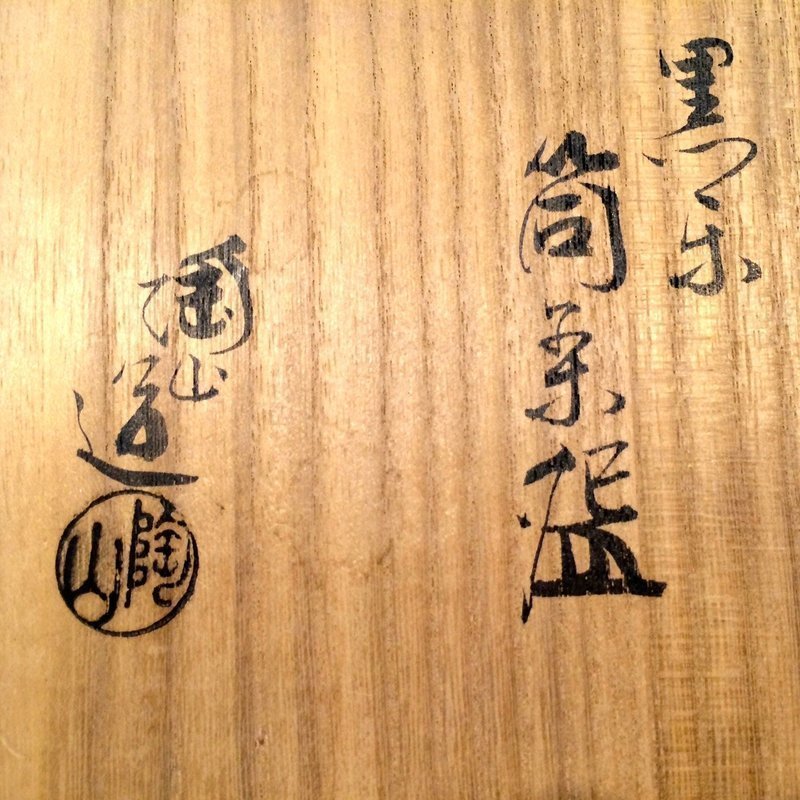 黒楽
筒茶盌
陶山造
陶山